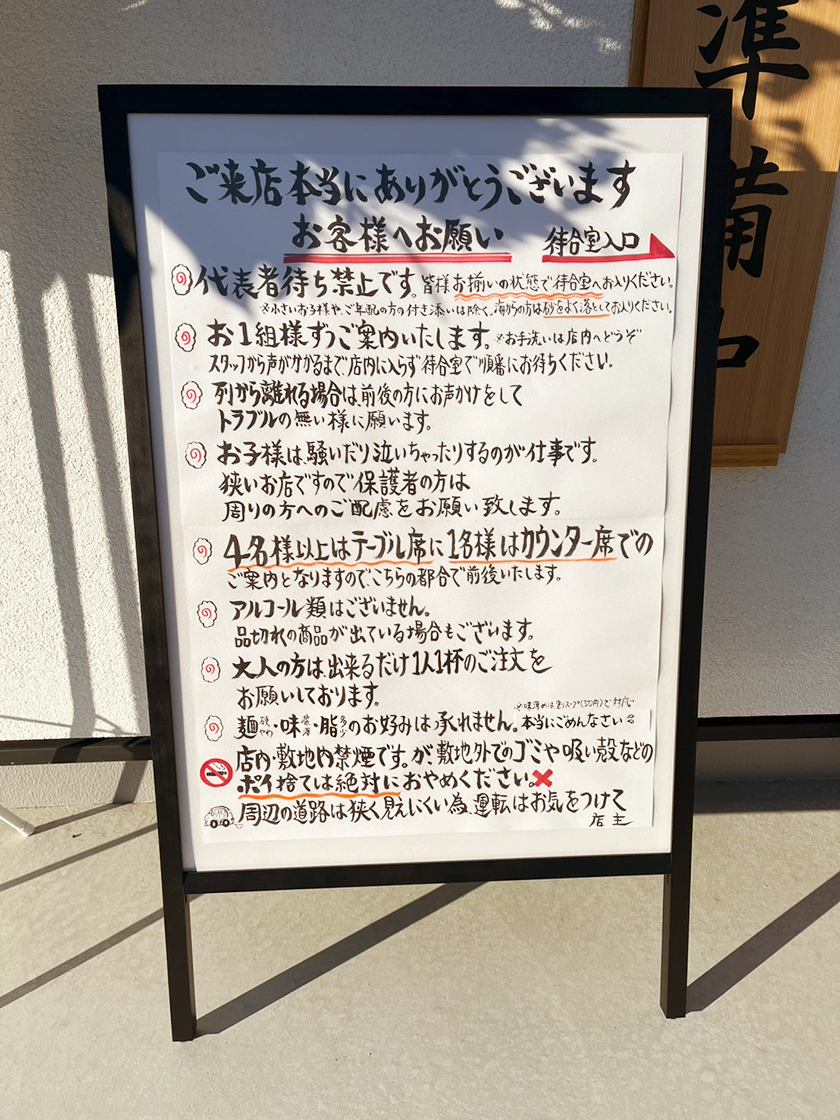 準備中
ご来店本当にありがとうございます
お客様へお願い 待合室入口
代表者待ち禁止です。皆様お揃いの状態で待合室へお入りください。
※小さいお子様や、ご年配の方の付き添いは除く、海からの方は砂をよく落としてお入りください。
お1組様ずつご案内いたします。※お手洗いは店内へどうぞ
スタッフから声がかかるまで店内に入らず待合室で順番にお待ちください。
列から離れる場合は前後の方にお声がけをして
トラブルの無い様に願います。
お子様は、騒いだり泣いちゃったりするのが仕事です。
狭いお店ですので保護者の方は
周りの方へのご配慮をお願い致します。
4名様以上はテーブル席に1名様はカウンター席での
ご案内となりますので、こちらの都合で前後いたします。
アルコール類はございません。
品切れの商品が出ている場合もございます。
大人の方は、出来るだけ1人1杯のご注文を
お願いしております。
※味薄めは割りスープ(50円)で対応
麺・味・脂のお好みは承れません。本当にごめんなさい
店内・敷地内禁煙です。が、敷地外でのゴミや吸い殻などの
ポイ捨ては絶対におやめください。
周辺の道路は狭く見えにくい為、運転はお気をつけて
店主